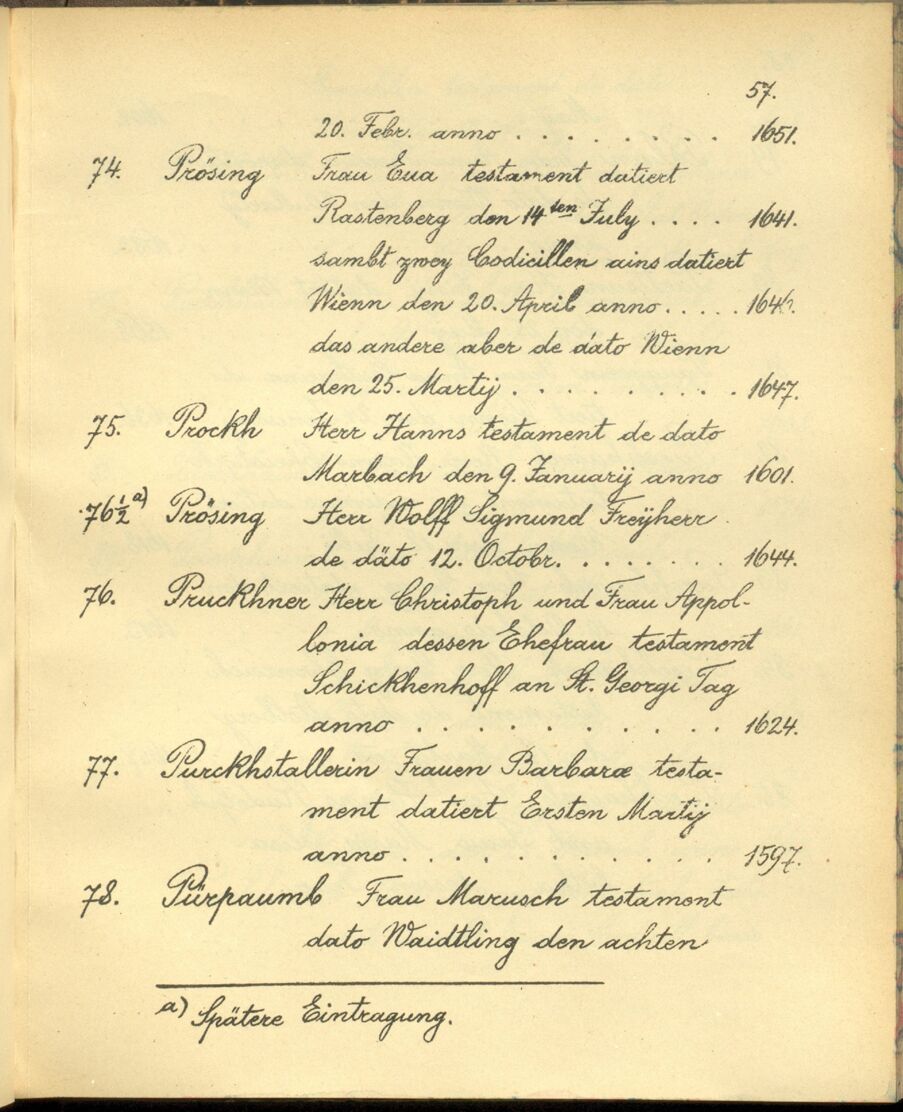 57.
20. Febr. anno . . . . . . . . 1651.
74. Prösing Frau Eua testament datiert
Rastenberg den 14ten July . . . . 1641.
sambt zwey Codicillen ains datiert
Wienn den 20. April anno . . . . . 1646.
das andere aber de dato Wienn
den 25. Martij . . . . . . . . . . 1647.
75. Prockh Herr Hanns testament de dato
Marbach den 9. Januarij anno 1601.
76½ a) Prösing Herr Wolff Sigmund Freÿherr
de däto 12. Octobr. . . . . . . . 1644.
76. Pruckhner Herr Christoph und Frau Appol-
lonia dessen Ehefrau testament
Schickhenhoff an St. Georgi Tag
anno . . . . . . . . . . . 1624.
77. Purckhstallerin Frauen Barbaræ testa-
ment datiert Ersten Martij
anno . . . . . . . . . . . . 1597.
78. Pürpaumb Frau Marusch testament
dato Waidtling den achten
a) Spätere Eintragung.